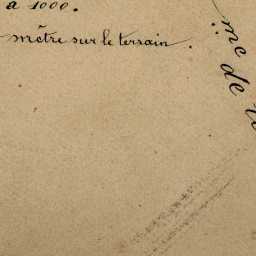 à 1000.
mètre sur le terrain.
me de